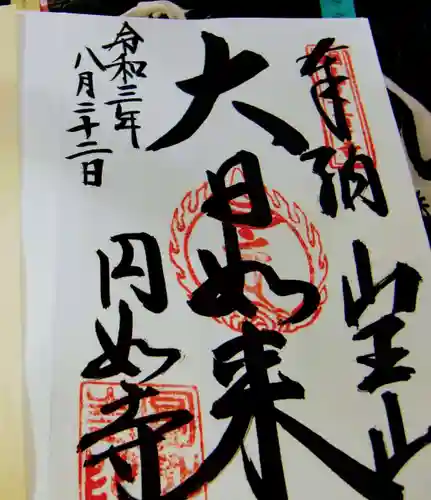 奉納
山王山
大日如来
円如寺
令和三年
八月二十二日